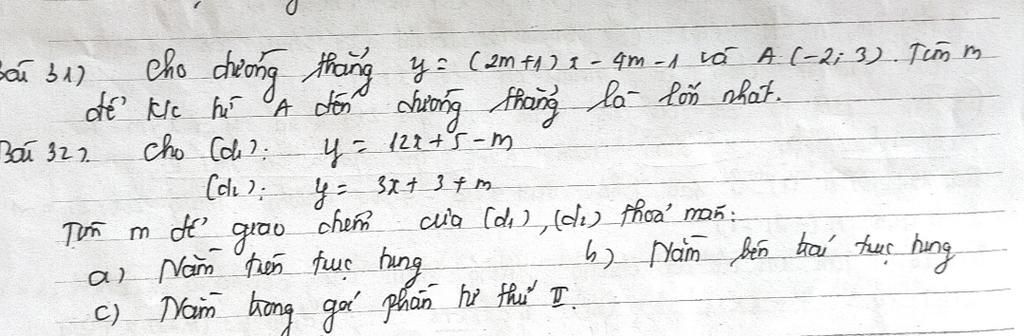 Bài 31) Cho đường thẳng y = (2m+1)x - 4m - 1 và A (-2; 3). Tìm m
để k/c từ A đến đường thẳng là lớn nhất.
Bài 32). Cho (d₁): y = 12x + 5 - m
(d₂): y = 3x + 3 + m
Tìm m để giao điểm của (d₁), (d₂) thoả mãn:
a) Nằm trên trục tung b) Nằm bên trái trục tung
c) Nằm trong góc phần tư thứ II.